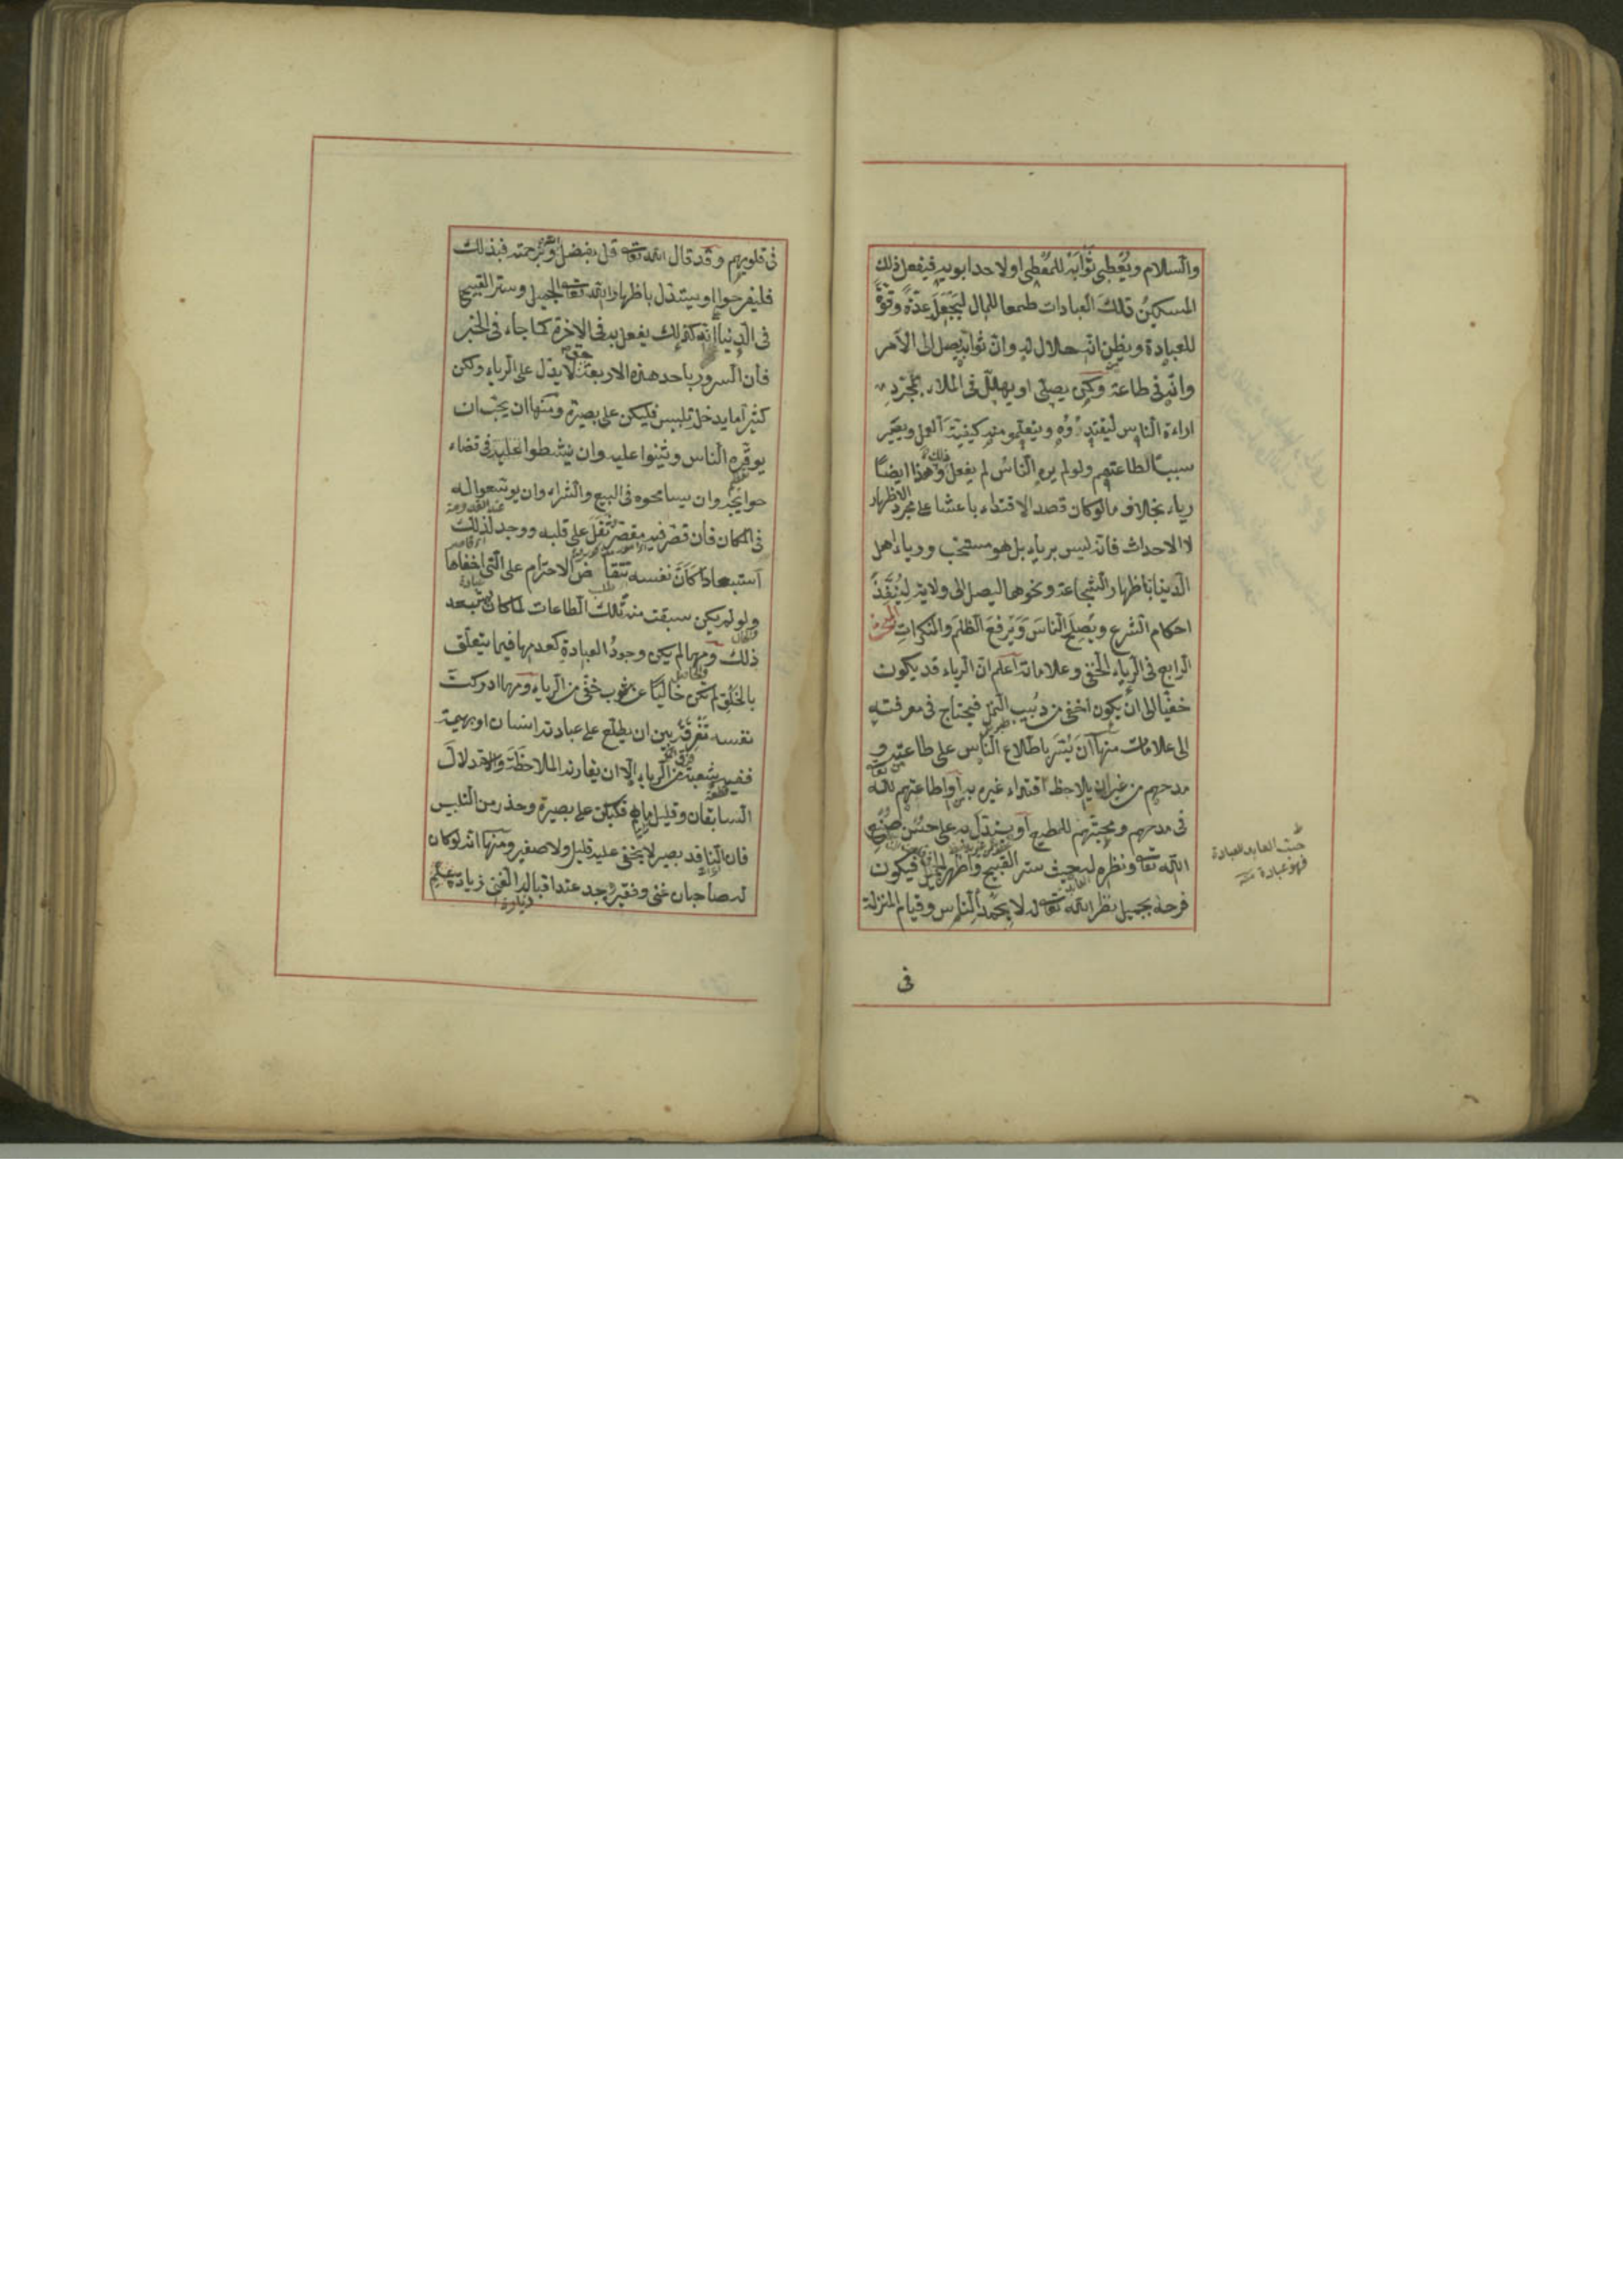 والسلام ويعطي ثوابه للمعطي اولاحدا بويه فيفعل ذلك
المسكين تلك العبادات طمعا للمال ليجعل عدة وقوة
للعبادة ويظن انه حلال له وان ثوابه يصل الى الآمر
وانه في طاعة وكمن يصلي او يهلل في الملاء لمجرد
اراءة الناس ليقتدوه ويتعلمو منه كيفية العمل ويصير
سببا لطاعتهم ولو لم يره الناس لم يفعل ذلك وهذا ايضا
رياء بخلاف ما لو كان قصد الاقتداء باعثا على مجرد الاظهار
لا الاحداث فانه ليس برياء بل هو مستحب ورياء اهل
الدينا باظهار الشجاعة ونحوها ليصل الى ولاية لينفذ
احكام الشرع ويصلح الناس ويرفع الظلم والمنكرات المبحث
الرابع في الرياء الخفي وعلاماته اعلم ان الرياء قد يكون
خفيا الى ان يكون اخفى من دبيب النمل فيحتاج في معرفته
الى علامات منها ان يسر باطلاع الناس على طاعته و
مدحهم من غير ان يلاحظ اقتداء غيره به او اطاعتهم لله تعالى
في مدحهم ومحبتهم للمطيع او يستدل به على حسن صنيع
الله تعالى ونظره له حيث ستر القبيح واظهر الجميل فيكون
فرحه بجميل نظر الله تعالى له لا بحمد الناس وقيام المنزلة
حب العابد للعبادة
فهو عبادة
في
في قلوبهم وقد قال الله تعالى قل بفضل الله وبرحمته فبذلك
فليفرحوا او يستدل باظهار الله تعالى الجميل وستر القبيح
في الدنيا انه كذلك يفعل به في الآخرة كما جاء في الخبر
فان السرور باحد هذه الاربعة حق لا يدل على الرياء ولكن
كثيرا ما يدخل تلبيس فليكن على بصيرة ومنها ان يحب ان
يوقره الناس ويثنوا عليه وان ينشطوا في قضاء
حوايجه وان يسامحوه في البيع والشراء وان يوسعوا له
في المكان فان قصر فيه مقصر ثقل على قلبه ووجد لذلك
استبعادا كان نفسه تتقاضى الاحترام على التي اخفاها
ولو لم يكن سبقت منه تلك الطاعات لما كان يستبعد
ذلك ومهما لم يكن وجود العبادة كعدمها فيما يتعلق
بالخلق لم يكن خاليا عن شوب خفي من الرياء ومهما ادركت
نفسه تفرقة بين ان يطلع على عبادته انسان او بهيمة
ففيه شعبة من الرياء الا ان يقارنه الملاحظة والاستدلال
السابقان وقليل ما هم فليكن على بصيرة وحذر من التلبيس
فان الناقد بصير لا يخفى عليه قليل ولا صغير ومنها انه لو كان
له صاحبان غني وفقير وجد عند اقبال الغني زيادة